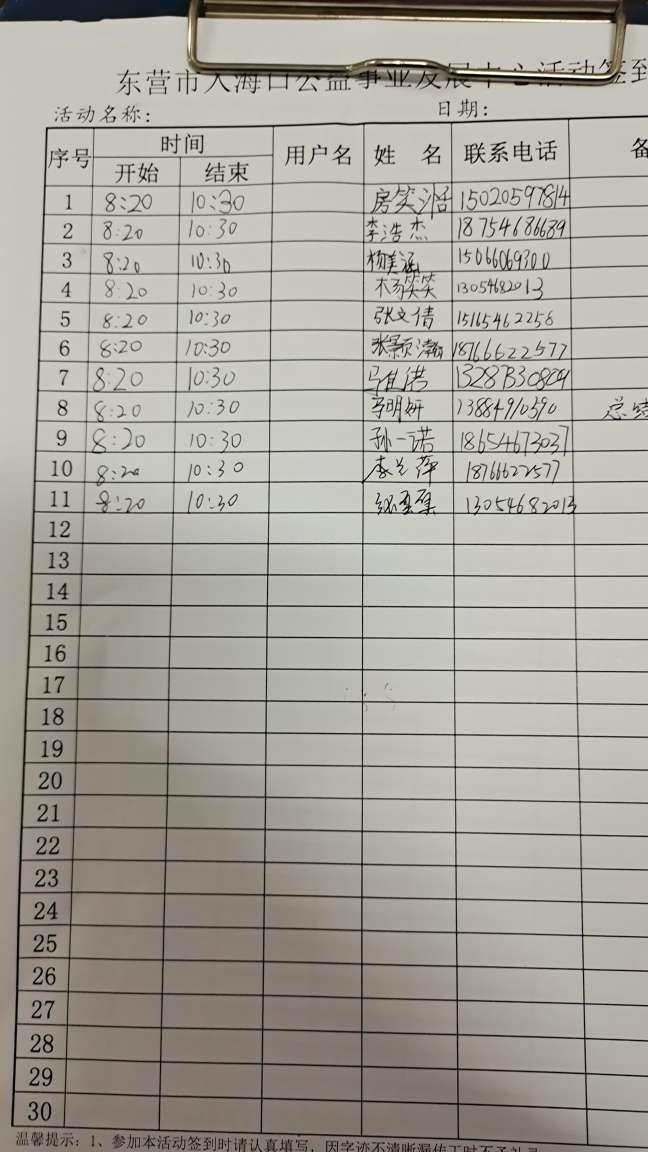 东营市入海口公益事业发展中心活动签到
活动名称: 日期:
序号 时间 用户名 姓 名 联系电话 备
开始 结束
1 8:20 10:30 房笑 15020597814
2 8:20 10:30 李浩杰 18754686689
3 8:20 10:30 杨美涵 15066069300
4 8:20 10:30 杨笑笑 13054682013
5 8:20 10:30 张文倩 15165462258
6 8:20 10:30 张颢瀚 18766622577
7 8:20 10:30
8 8:20 10:30 李明妍 13884910390 总结
9 8:20 10:30 孙一诺 18654673037
10 8:20 10:30 李兰萍 18766622577
11 8:20 10:30 13054682013
12
13
14
15
16
17
18
19
20
21
22
23
24
25
26
27
28
29
30
温馨提示: 1、参加本活动签到时请认真填写, 因字迹不清晰漏传工时不予补录